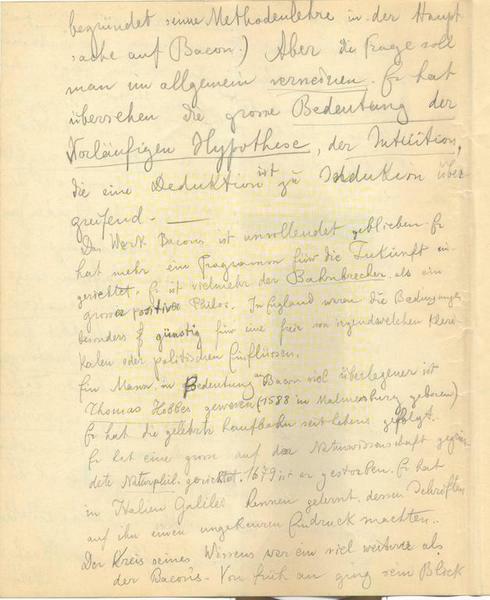 begründet seine Methodenlehre in der Haupt
sache auf Bacon.) Aber die Frage soll
man im allgemein verneinen. Er hat
übersehen die grosse Bedeutung der
Vorläufigen Hypothese, der Intuition,
die eine Deduktion ist zu Induktion über
greifend. —
Das Werk Bacons ist unvollendet geblieben. Er
hat mehr ein Programm für die Zukunft ein
gerichtet. Er ist vielmehr der Bahnbrecher als ein
grosser positiver Philos. In England waren die Bedingungen
besonders günstig für eine freie von irgendwelchen Kleri
kalen oder politischen Einflüssen.
Ein Mann in Bedeutung an Bacon viel überlegener ist
Thomas Hobbes gewesen (1588 in Malmesburg geboren)
Er hat die gelehrte Laufbahn seit lebens gefolgt.
Er hat eine grosse auf der Naturwissenschaft gegrün
dete Naturphil. gerichtet. 1679 ist er gestorben. Er hat
in Italien Galilei kennen gelernt, dessen Schriften
auf ihn einen ungeheuren Eindruck machten..
Der Kreis seines Wissens war ein viel weiterer als
der Bacon's. Von früh an ging sein Blick